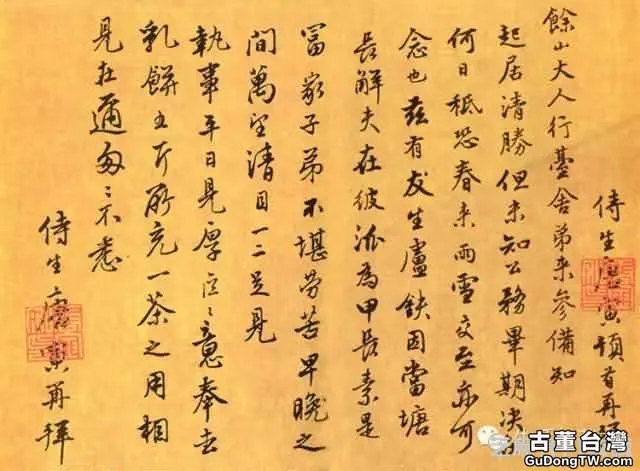 侍生唐寅頓首再拜
餘山大人行臺舍弟來參備知
起居清勝但未知公務畢期決
何日秪恐春來雨雪交至亦可
念也茲有友生盧鈇因當塘
長解夫在彼派為甲長素是
富家子弟不堪勞苦早晚之
間萬望清目一二足見
執事平日見厚區〻意奉去
乳餅五斤聊充一茶之用相
見在邇匆〻不悉
侍生唐寅再拜
古董台灣
GuDongTW.com